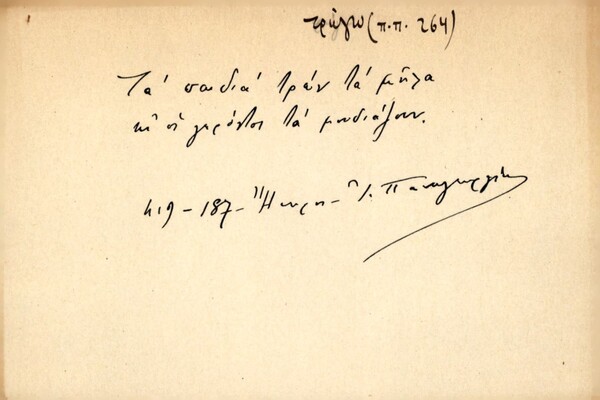 τρώγω (π.π. 264)
Τα' παιδιά τρών τά μῆλα
κῆ οἱ γερόντοι τά μουδιάζουν.
419 - 187 - Ἤπειρ - Ἰ.